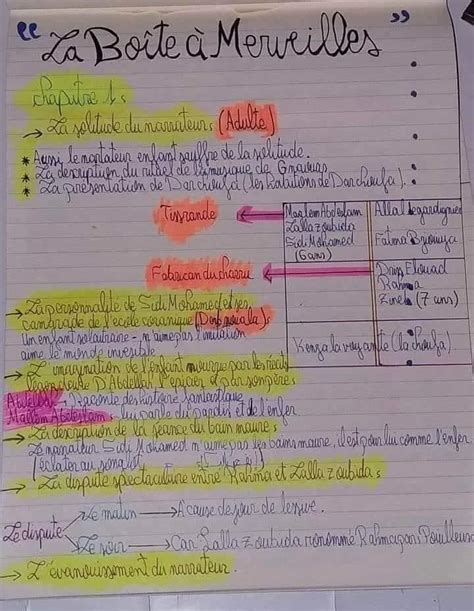 "La Boîte à Merveilles"
Chapitre 1:
→ La solitude du narrateur: (Adulte)
* Aussi le narrateur enfant souffre de la solitude.
* La description du rituel de la musique de Gnawas
* La présentation de Darchoufa (les locations de Darchoufa).
Tissrande
Maalem Abdeslam
Lalla zoubida
Sidi Mohamed
(6 ans)
Allal le gardignier
Fatma Bziouya
Fabrican du charru
Driss Elouad
Rahma
Zineb (7 ans)
Kenza la voyante (la choufa).
→ La personnalité de Sidi Mohamed et ses
camarade de l'ecole coranique
un enfant solautraire - n'aime pas l'
aime le mon de invesible
→ L'imagination de l'enfant nourize par les récits
légendaire D Abdellah l'epicier et par son père:
Abdellah → Raconte des histoire fantastique
Mallem Abdeslam: lui parle du paradis et de l'enfer.
→ La description de la séance du bain maure:
Le narrateur Sidi Mohamed n'aime pas les bains maure, il est pour lui comme l'enfer
→ La dispute spectaculture entre Rahma et Lalla zoubida:
Le dispute
Le matin → A cause de jour de lessive.
Le soir → Car Lalla Zoubida
→ L'évanouissement du narrateur.